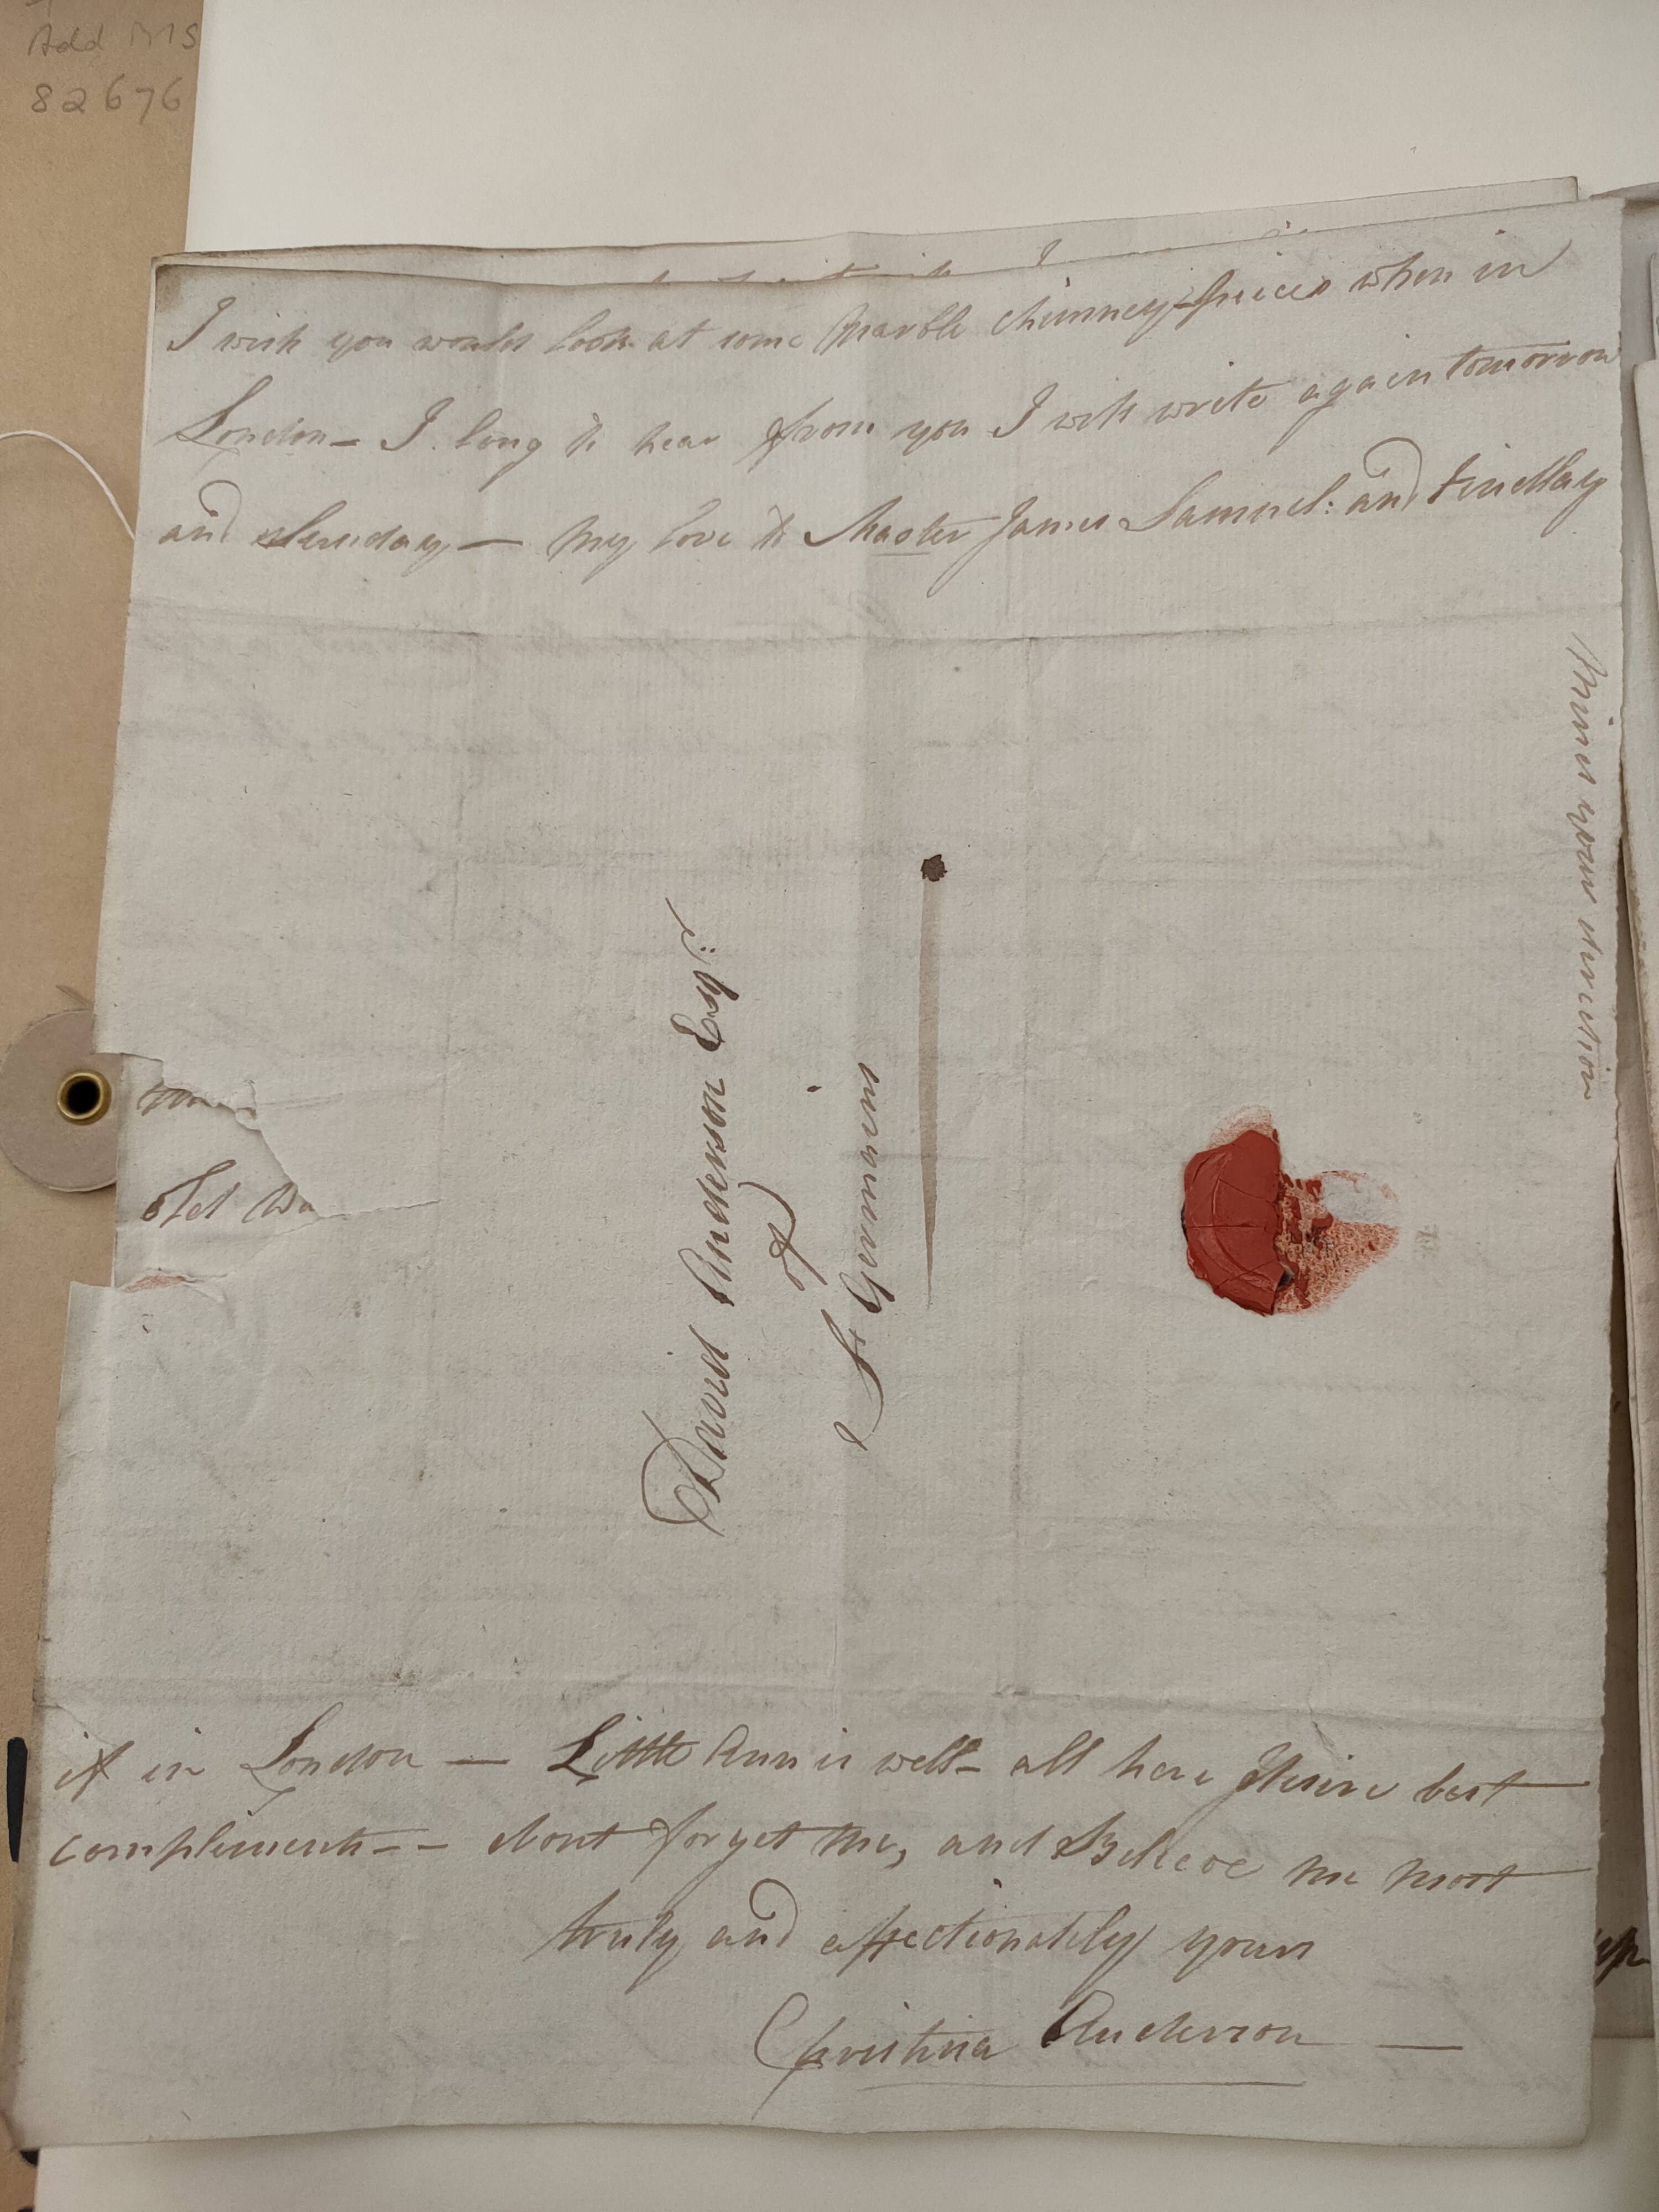 Add MS
82676
I wish you would look at some Marble Chimney-pieces when in
London – I long to hear from you I will write again tomorrow
and Sunday – My love to Master James Samuel: and Findlay
Mind your direction
David Anderson Esqr:
of
St Germains
it in London – Little Ann is well – all here Desire best
compliments – dont forget me, and Believe me most
truly and affectionately yours
Christina Anderson –